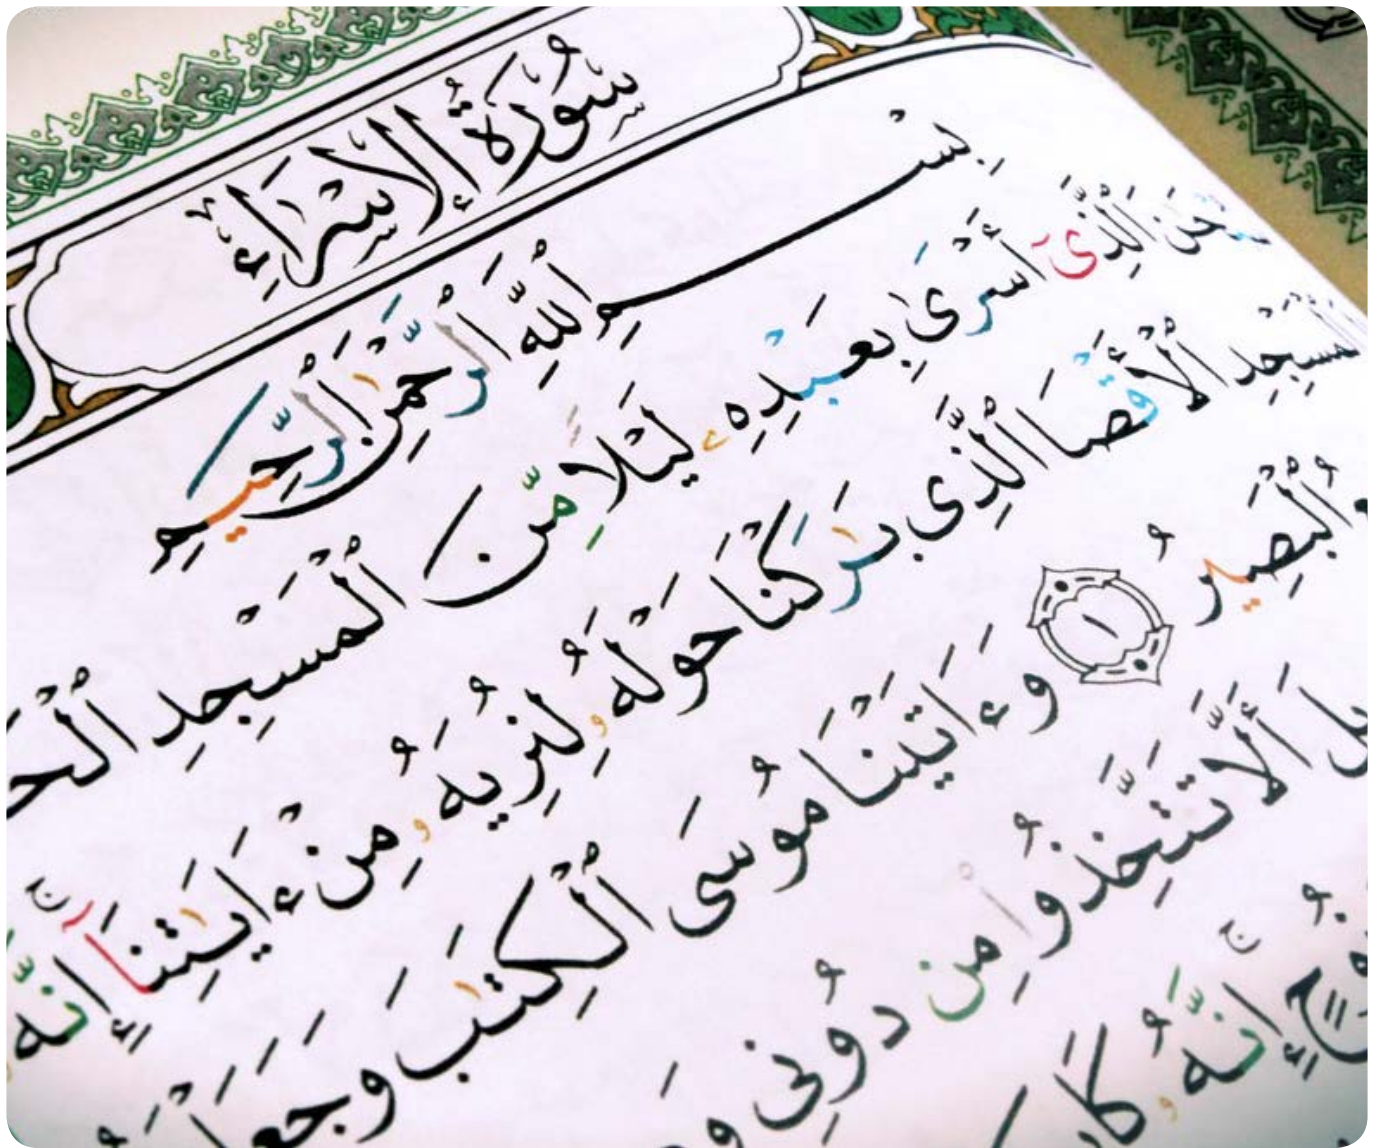 سُورَةُ الإِسْرَاءِ
بِسْمِ ٱللَّهِ ٱلرَّحْمَٰنِ ٱلرَّحِيمِ
ٱلَّذِىٓ أَسْرَىٰ بِعَبْدِهِۦ لَيْلًا مِّنَ ٱلْمَسْجِدِ
ٱلْمَسْجِدِ ٱلْأَقْصَا ٱلَّذِى بَٰرَكْنَا حَوْلَهُۥ لِنُرِيَهُۥ مِنْ ءَايَٰتِنَآ ۚ إِنَّهُۥ
ٱلْبَصِيرُ ١ وَءَاتَيْنَا مُوسَى ٱلْكِتَٰبَ
أَلَّا تَتَّخِذُوا۟ مِن دُونِى
إِنَّهُۥ